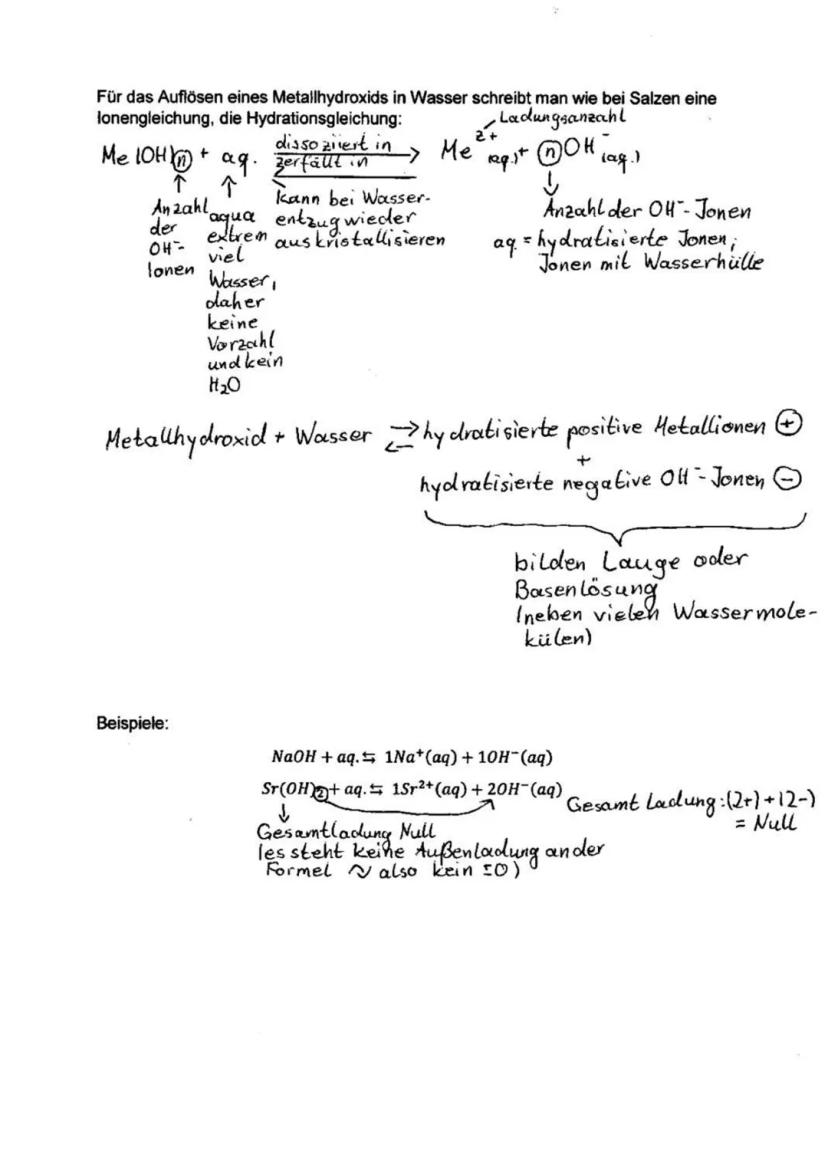 Für das Auflösen eines Metallhydroxids in Wasser schreibt man wie bei Salzen eine
Ionengleichung, die Hydrationsgleichung:
Ladungsanzahl
Me(OH)n + aq. dissoziiert in → Me 2+ (aq.) + n OH - (aq.)
zerfällt in
kann bei Wasser-
entzug wieder
auskristallisieren
Anzahl
der
OH⁻-
Ionen
aqua
extrem
viel
Wasser,
daher
keine
Vorzahl
und kein
H₂O
Anzahl der OH⁻-Jonen
aq. = hydratisierte Jonen;
Jonen mit Wasserhülle
Metallhydroxid + Wasser ⇌ hydratisierte positive Metallionen ⊕
+
hydratisierte negative OH⁻-Jonen ⊖
bilden Lauge oder
Basenlösung
(neben vielen Wassermole-
külen)
Beispiele:
NaOH + aq. ⇆ 1Na⁺(aq) + 1OH⁻(aq)
Sr(OH)2 + aq. ⇆ 1Sr²⁺(aq) + 2OH⁻(aq)
Gesamt Ladung: (2+) + (2-)
= Null
Gesamtladung Null
(es steht keine Außenladung an der
Formel ~ also kein ±0)